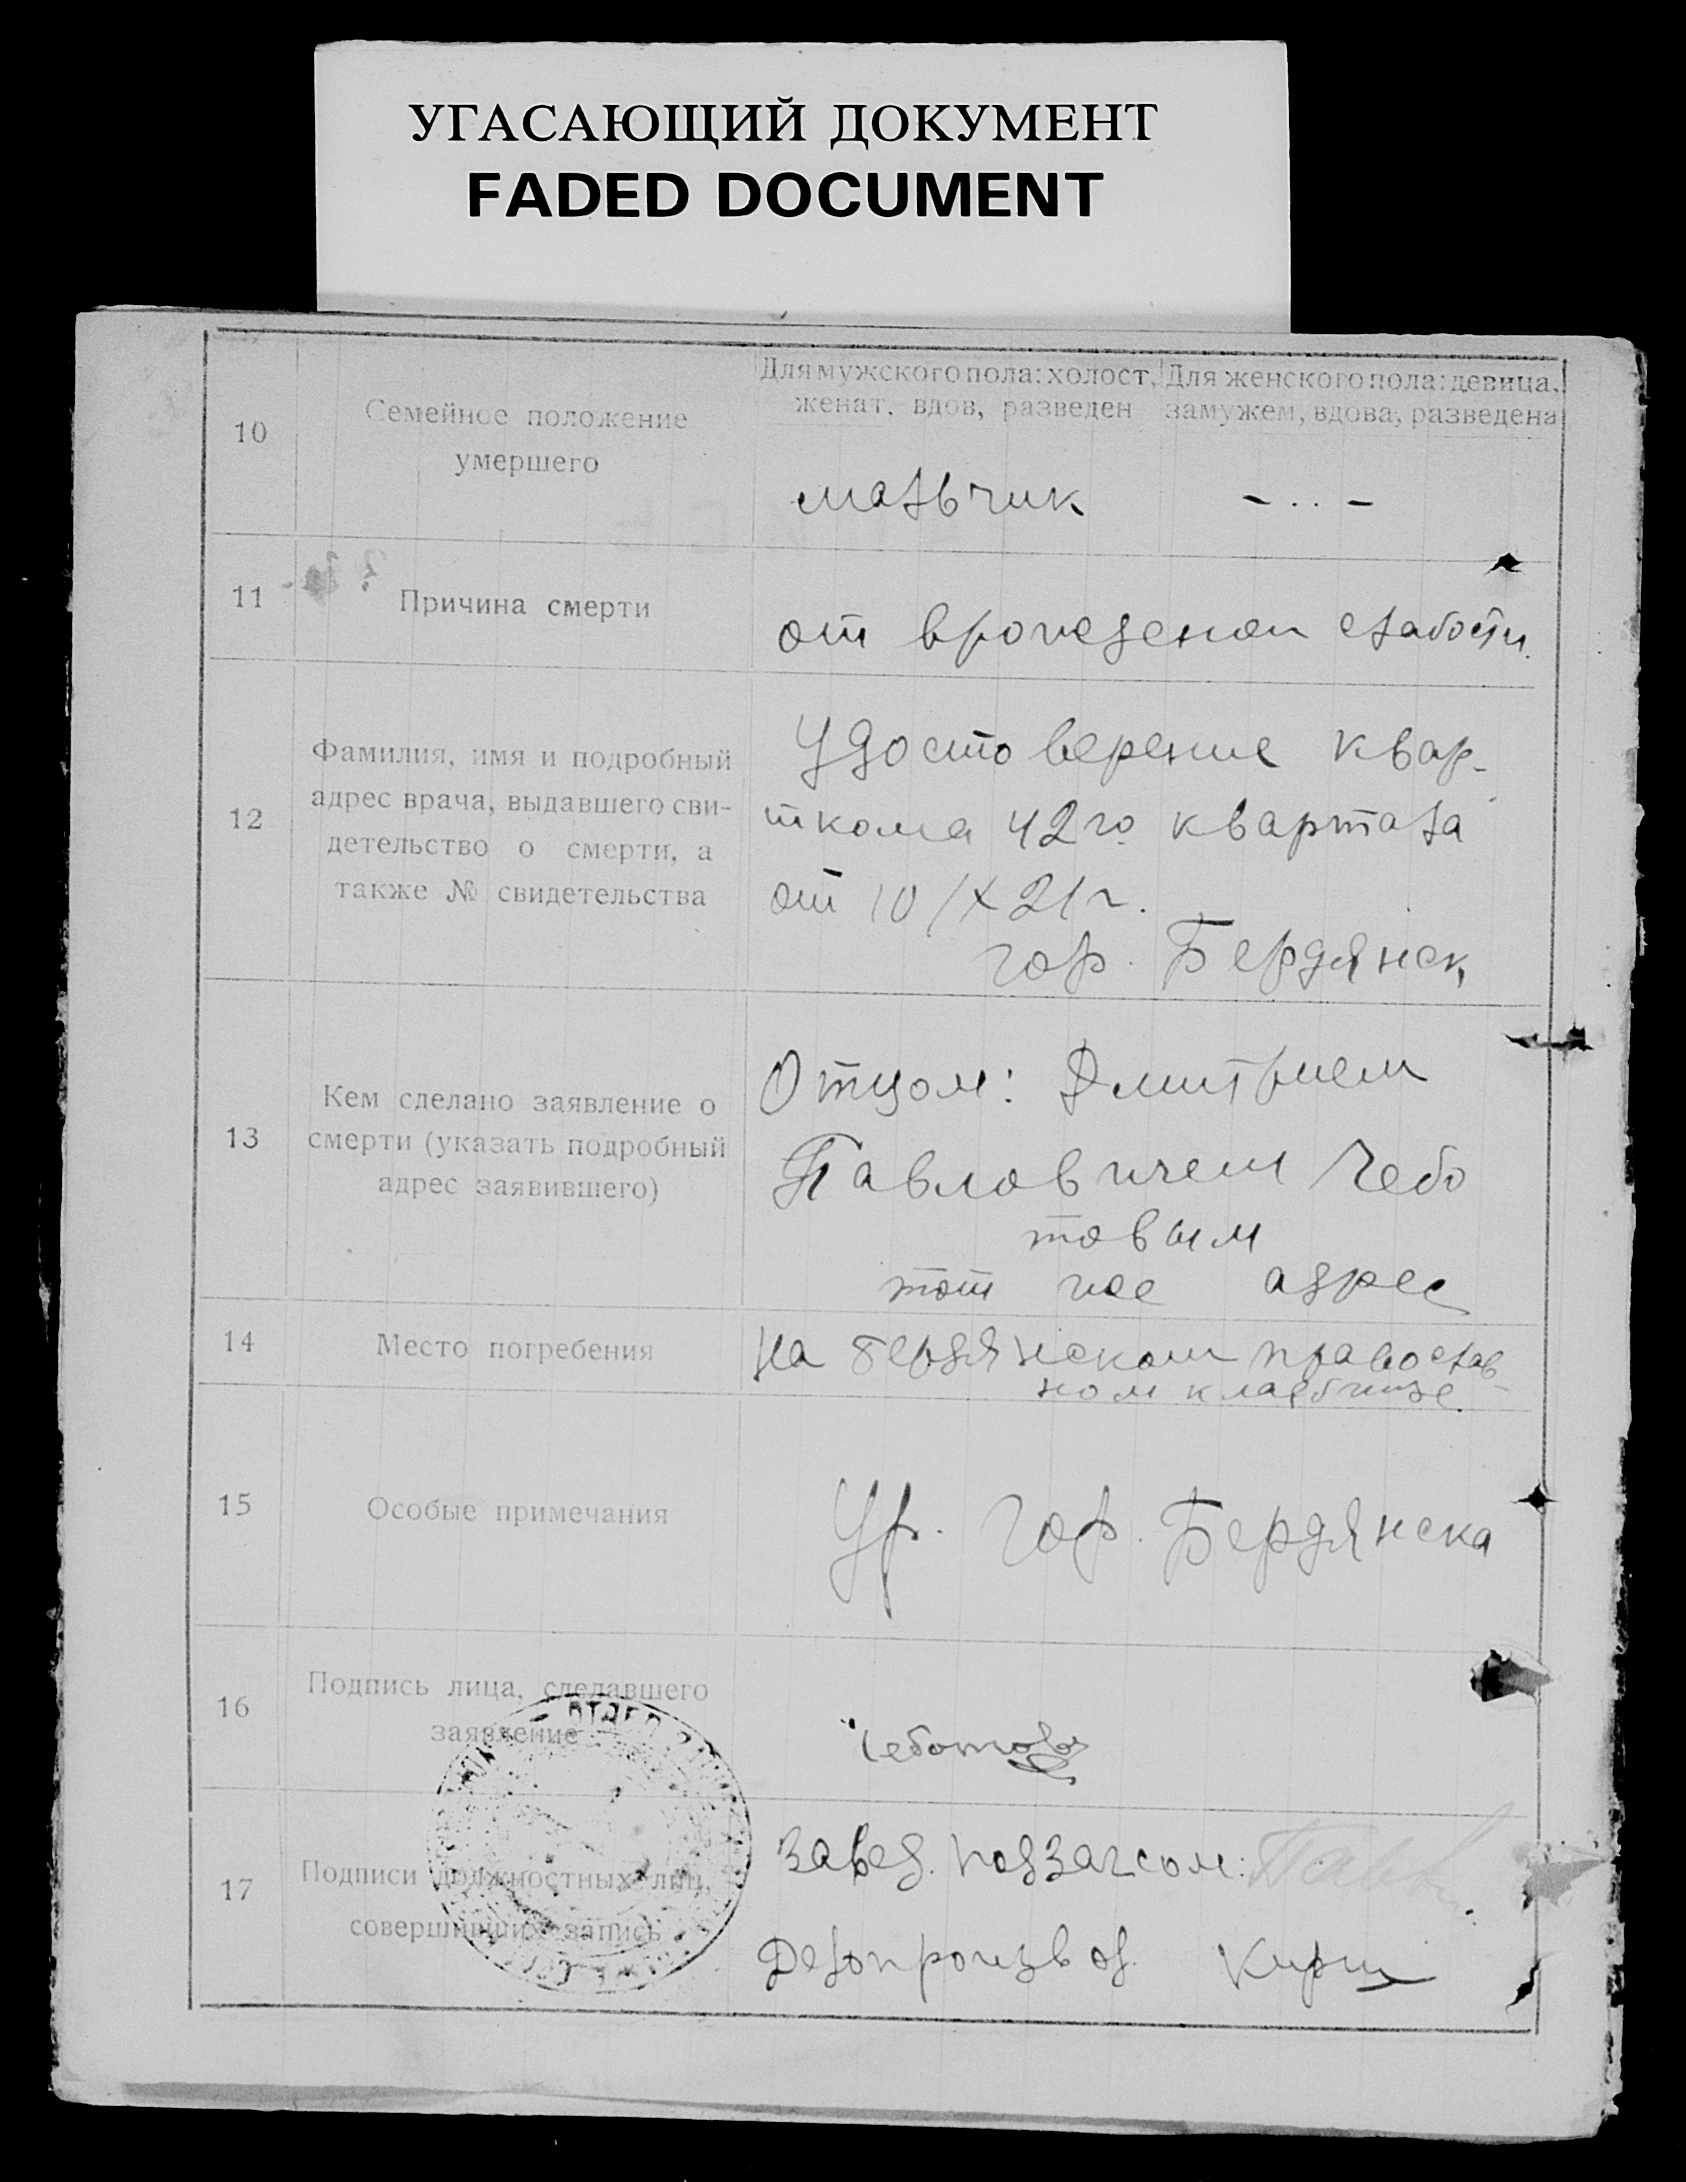 УГАСАЮЩИЙ ДОКУМЕНТ
FADED DOCUMENT
10
Семейное положение
умершего
Для мужского пола: холост,
женат, вдов, разведен
Для женского пола: девица,
замужем, вдова, разведена
мальчик - .. -
11
Причина смерти
от врожденой слабости.
12
Фамилия, имя и подробный
адрес врача, выдавшего сви-
детельство о смерти, а
также № свидетельства
Удостоверение квар-
ткома 42го квартала
от 10/X 21 г.
гор. Бердянск
13
Кем сделано заявление о
смерти (указать подробный
адрес заявившего)
Отцом: Дмитрием
Павловичем Чебо
товым
тот же адрес
14
Место погребения
На Бердянском православ-
ном кладбище.
15
Особые примечания
Ур. гор. Бердянска
16
Подпись лица, сделавшего
заявление
Чеботов
17
Подписи должностных лиц,
совершивших запись
Завед. подзагсом:
Делопроизвод. Кирш